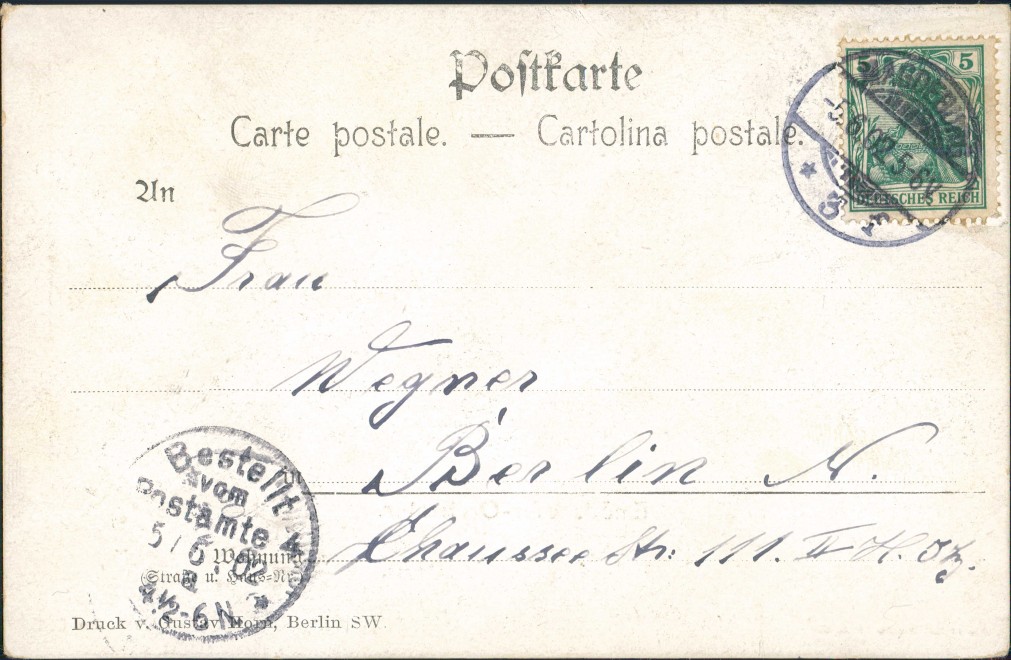 Postkarte
Carte postale. — Cartolina postale.
An
5 5
DEUTSCHES REICH
-5.6.02.5-6N.
Frau
Wegner
Berlin N.
Chaussee Str: 111. II
Bestellt
vom
Postamte 4
5/6.02
4½-6N.
Wohnung
(Straße u. Haus-Nr.)
Druck v. Gustav Horn, Berlin SW.